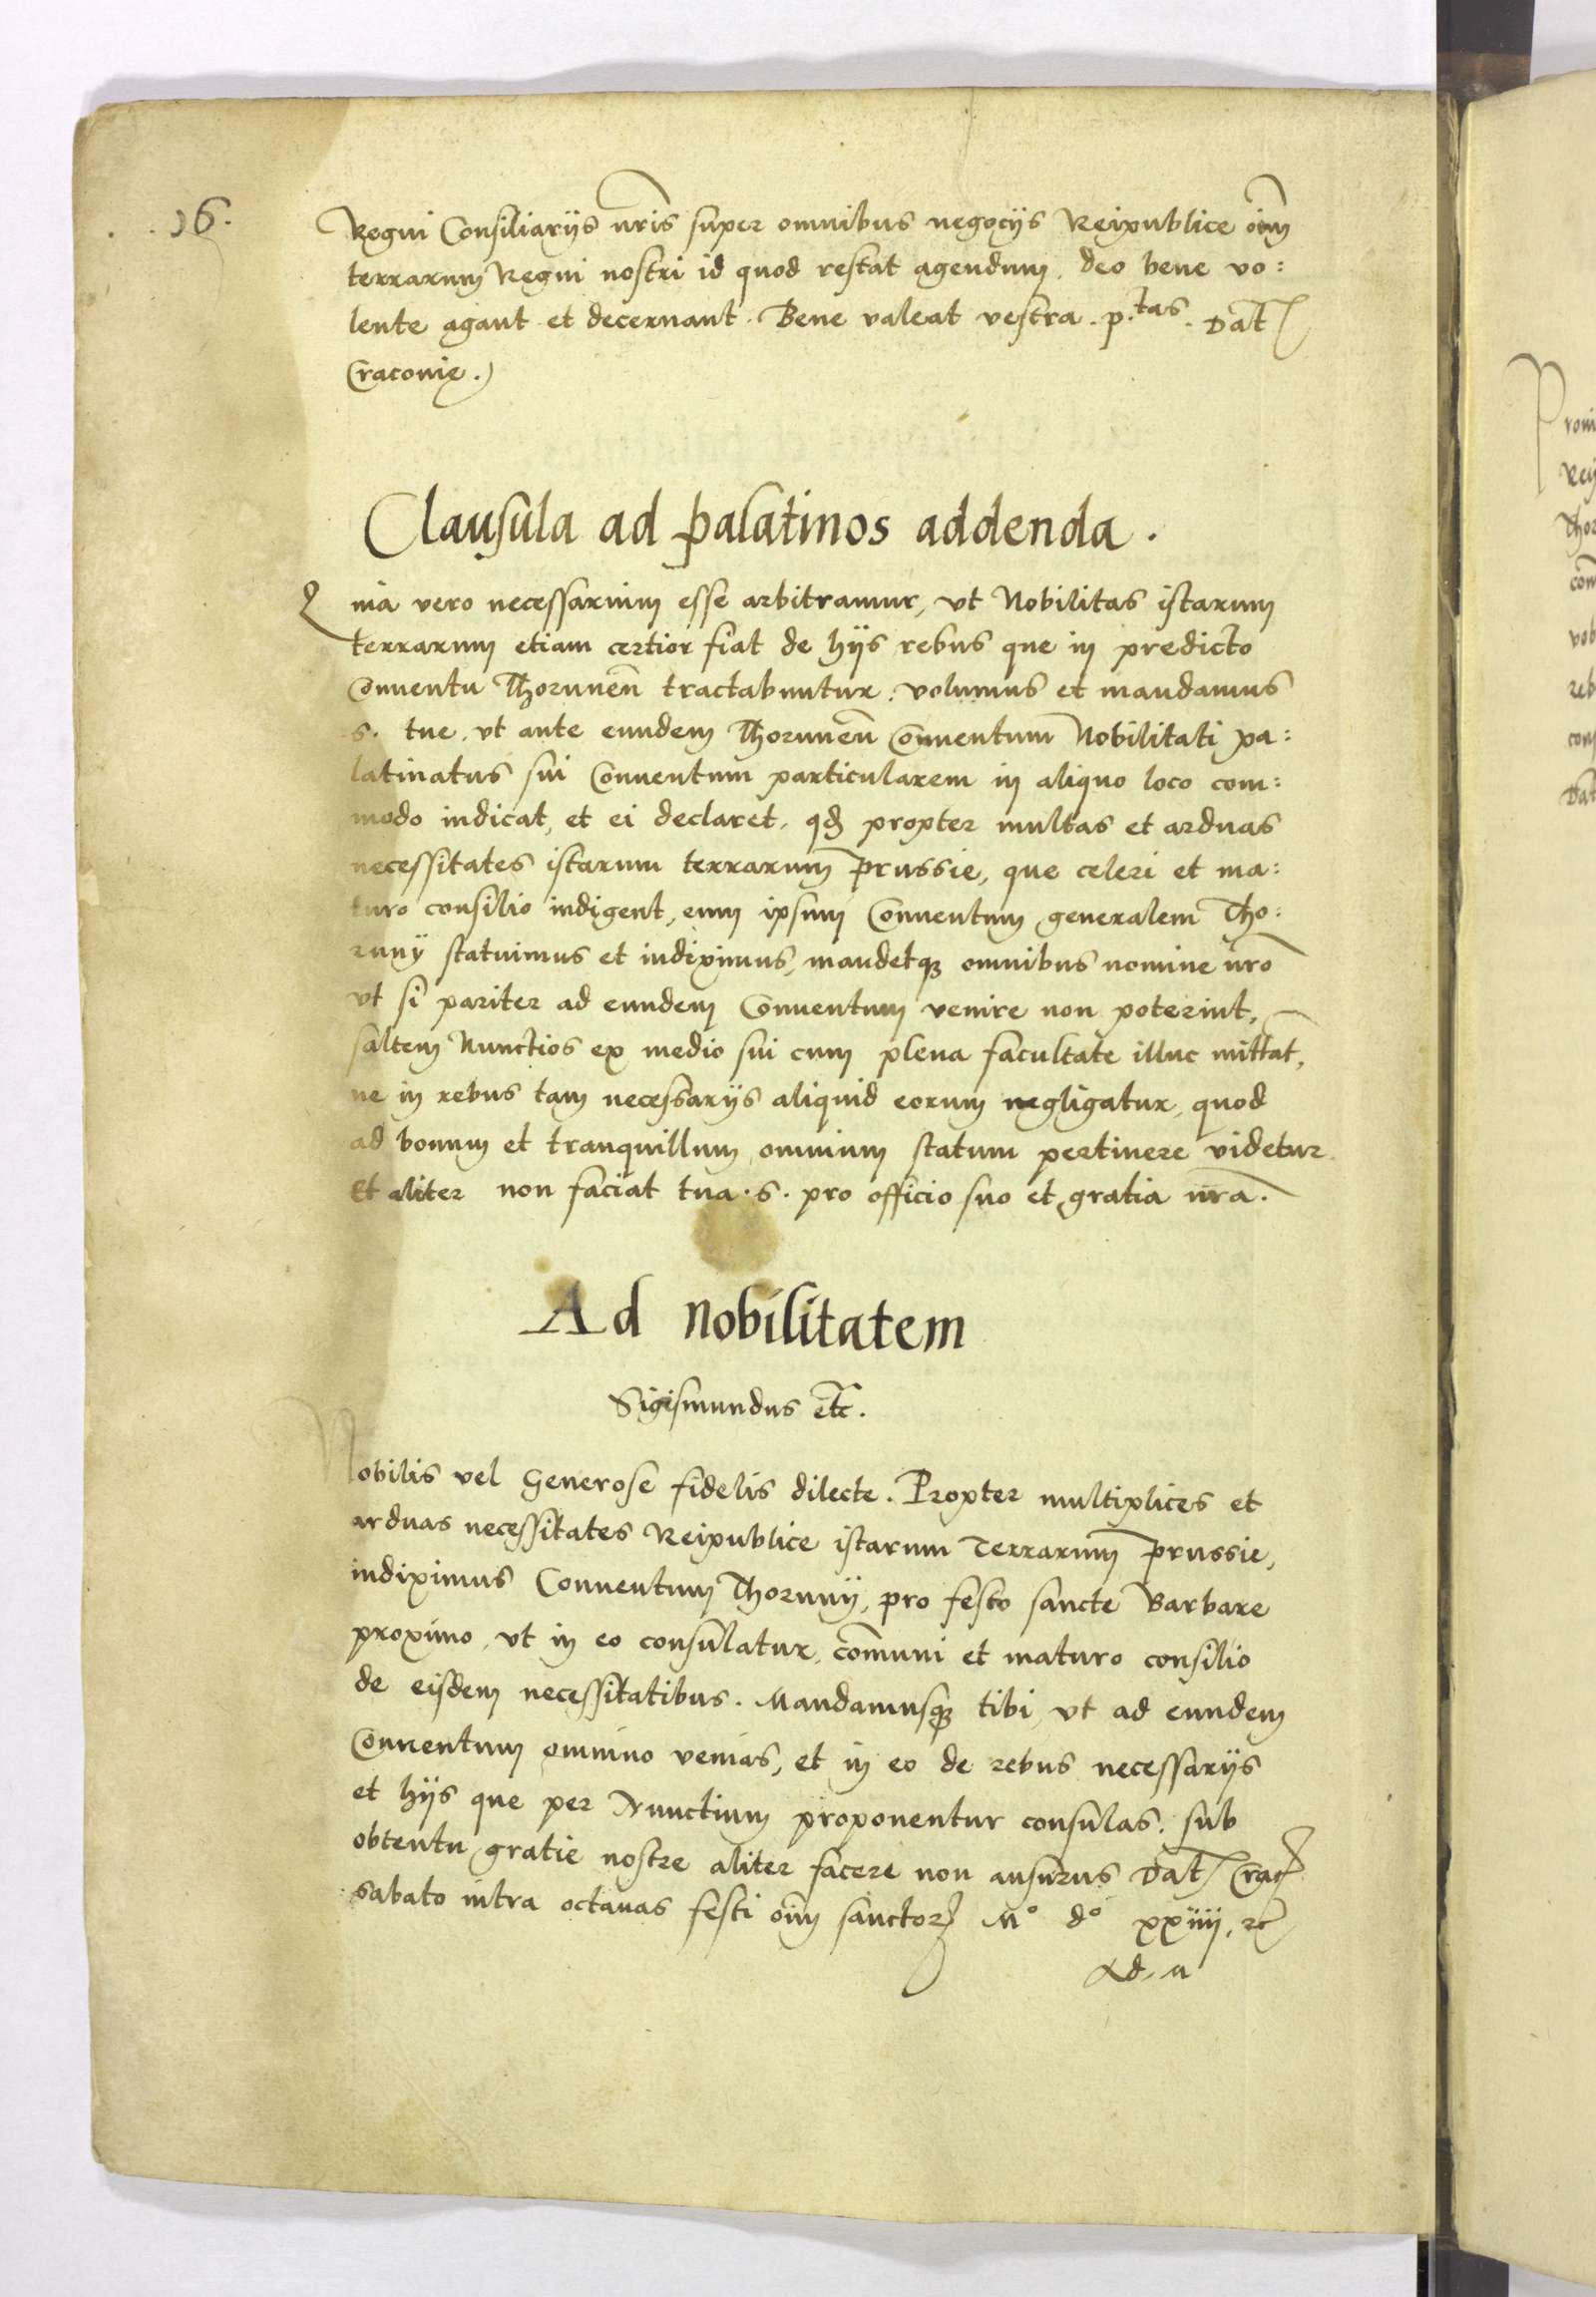 16.
Regni Consiliariis nr̃is super omnibus negocijs Reipublice oĩm
terrarum Regni nostri id quod restat agendum, deo bene vo:
lente agant et decernant. Bene valeat vestra. p.tas. Dat
Cracovie.
Clausula ad palatinos addenda.
Quia vero necessarium esse arbitramur, vt Nobilitas istarum
terrarum etiam certior fiat de hijs rebus que in predicto
Conventu Thorunen̄ tractabuntur. volumus et mandamus
s. tue, vt ante eundem Thorunen̄ Conuentum Nobilitati pa:
latinatus sui Conuentum particularem in aliquo loco com:
modo indicat, et ei declaret, qđ propter multas et arduas
necessitates istarum terrarum prussie, que celeri et ma:
turo consilio indigent, eum ipsum Conuentum generalem Tho:
runij statuimus et indiximus, mandetqꝫ omnibus nomine nr̃o
vt si pariter ad eundem Conuentum venire non poterint,
saltem Nunctios ex medio sui cum plena facultate illuc mittat,
ne in rebus tam necessarijs aliquid eorum negligatur, quod
ad bonum et tranquillum omnium statum pertinere videtur.
Et aliter non faciat tua. s. pro officio suo et gratia nr̃a.
Ad Nobilitatem
Sigismundus etc̃.
Nobilis vel Generose fidelis dilecte. Propter multiplices et
arduas necessitates Reipublice istarum Terrarum prussie,
indiximus Conuentum Thorunij, pro festo sancte Barbare
proximo, vt in eo consulatur, com̃uni et maturo consilio
de eisdem necessitatibus. Mandamusqꝫ tibi, vt ad eundem
Conuentum omnino venias, et in eo de rebus necessarijs
et hijs que per Nunctium proponentur consulas. sub
obtentu gratie nostre aliter facere non ausurus Dat Crac
sabato intra octauas festi oĩm sanctoꝝ Mº dº xxiiij, rc̃
Ad. m
Proui
Rei
Thor
com̃
vob
reb
cons
Dat